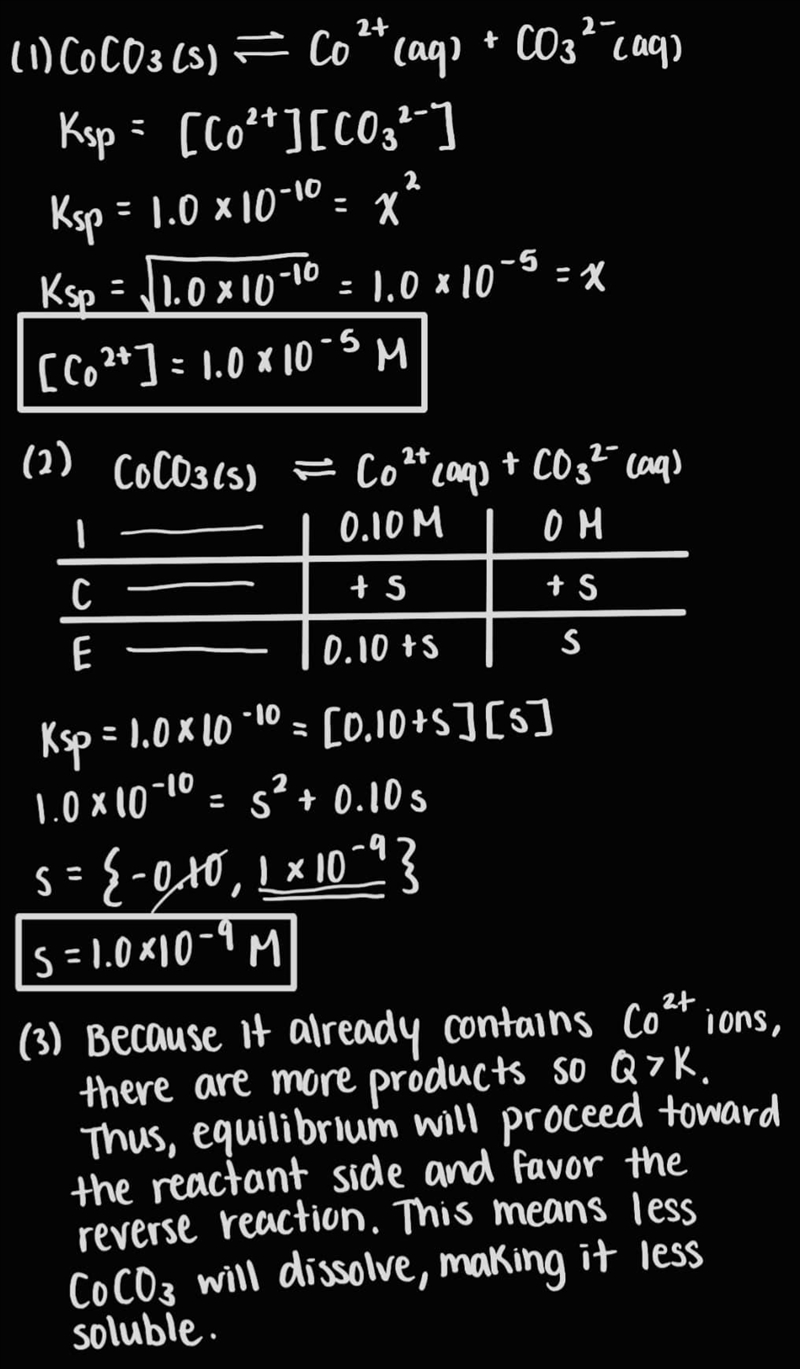 (1) CoCO₃(s) ⇌ Co²⁺(aq) + CO₃²⁻(aq)
Ksp = [Co²⁺][CO₃²⁻]
Ksp = 1.0 × 10⁻¹⁰ = x²
Ksp = √1.0 × 10⁻¹⁰ = 1.0 × 10⁻⁵ = x
[Co²⁺] = 1.0 × 10⁻⁵ M
(2) CoCO₃(s) ⇌ Co²⁺(aq) + CO₃²⁻(aq)
I —— | 0.10 M | 0 M
C —— | + s | + s
E —— | 0.10 + s | s
Ksp = 1.0 × 10⁻¹⁰ = [0.10+s][s]
1.0 × 10⁻¹⁰ = s² + 0.10s
s = {-0.10, 1 × 10⁻⁹}
s = 1.0 × 10⁻⁹ M
(3) Because it already contains Co²⁺ ions,
there are more products so Q > K.
Thus, equilibrium will proceed toward
the reactant side and favor the
reverse reaction. This means less
CoCO₃ will dissolve, making it less
soluble.